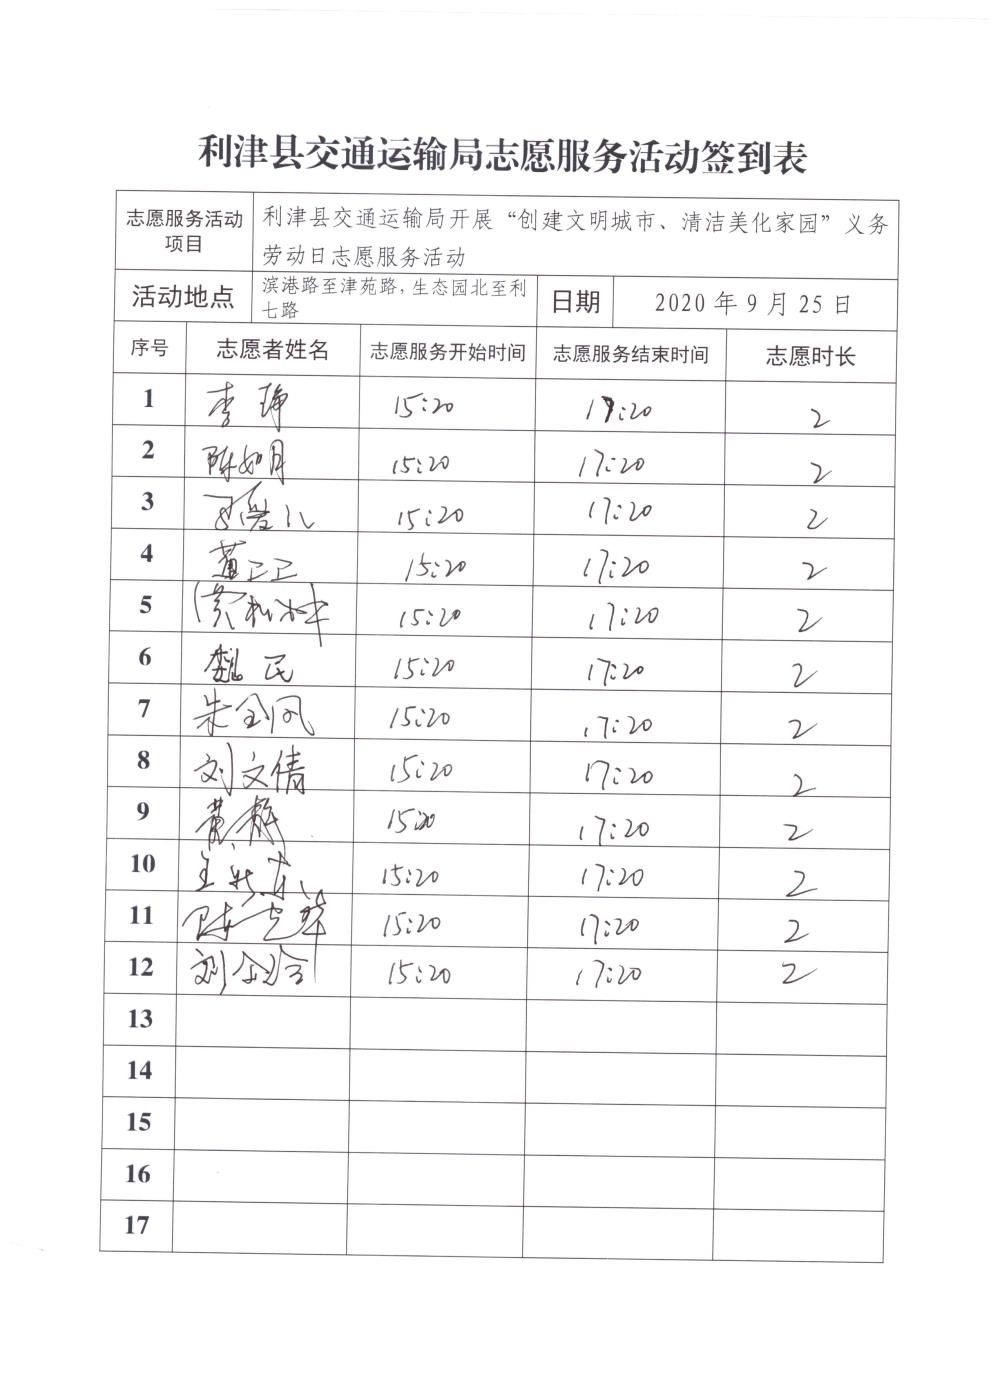 利津县交通运输局志愿服务活动签到表
志愿服务活动项目 利津县交通运输局开展“创建文明城市、清洁美化家园”义务
劳动日志愿服务活动
活动地点 滨港路至津苑路，生态园北至利
七路 日期 2020 年 9 月 25 日
序号 志愿者姓名 志愿服务开始时间 志愿服务结束时间 志愿时长
1 李琤 15:20 17:20 2
2 陈如月 15:20 17:20 2
3 15:20 17:20 2
4 董卫卫 15:20 17:20 2
5 黄松林 15:20 17:20 2
6 魏民 15:20 17:20 2
7 朱金凤 15:20 17:20 2
8 刘文倩 15:20 17:20 2
9 黄静 15:20 17:20 2
10 15:20 17:20 2
11 15:20 17:20 2
12 刘 15:20 17:20 2
13
14
15
16
17